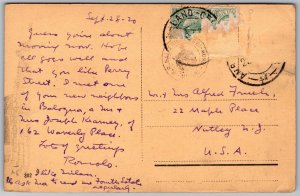 Sept. 28-20
Guess you're about
moving now. Hope
all goes well and
that you like Perry
Street. I met one
of your new neighbors
in Bologna, a Mr
Mrs Joseph Kearney, of
162 Waverly Place.
Lots of greetings
Romolo.
Mr & Mrs Alfred Fruch,
22 Maple Place
Nutley N.J.
U.S.A.